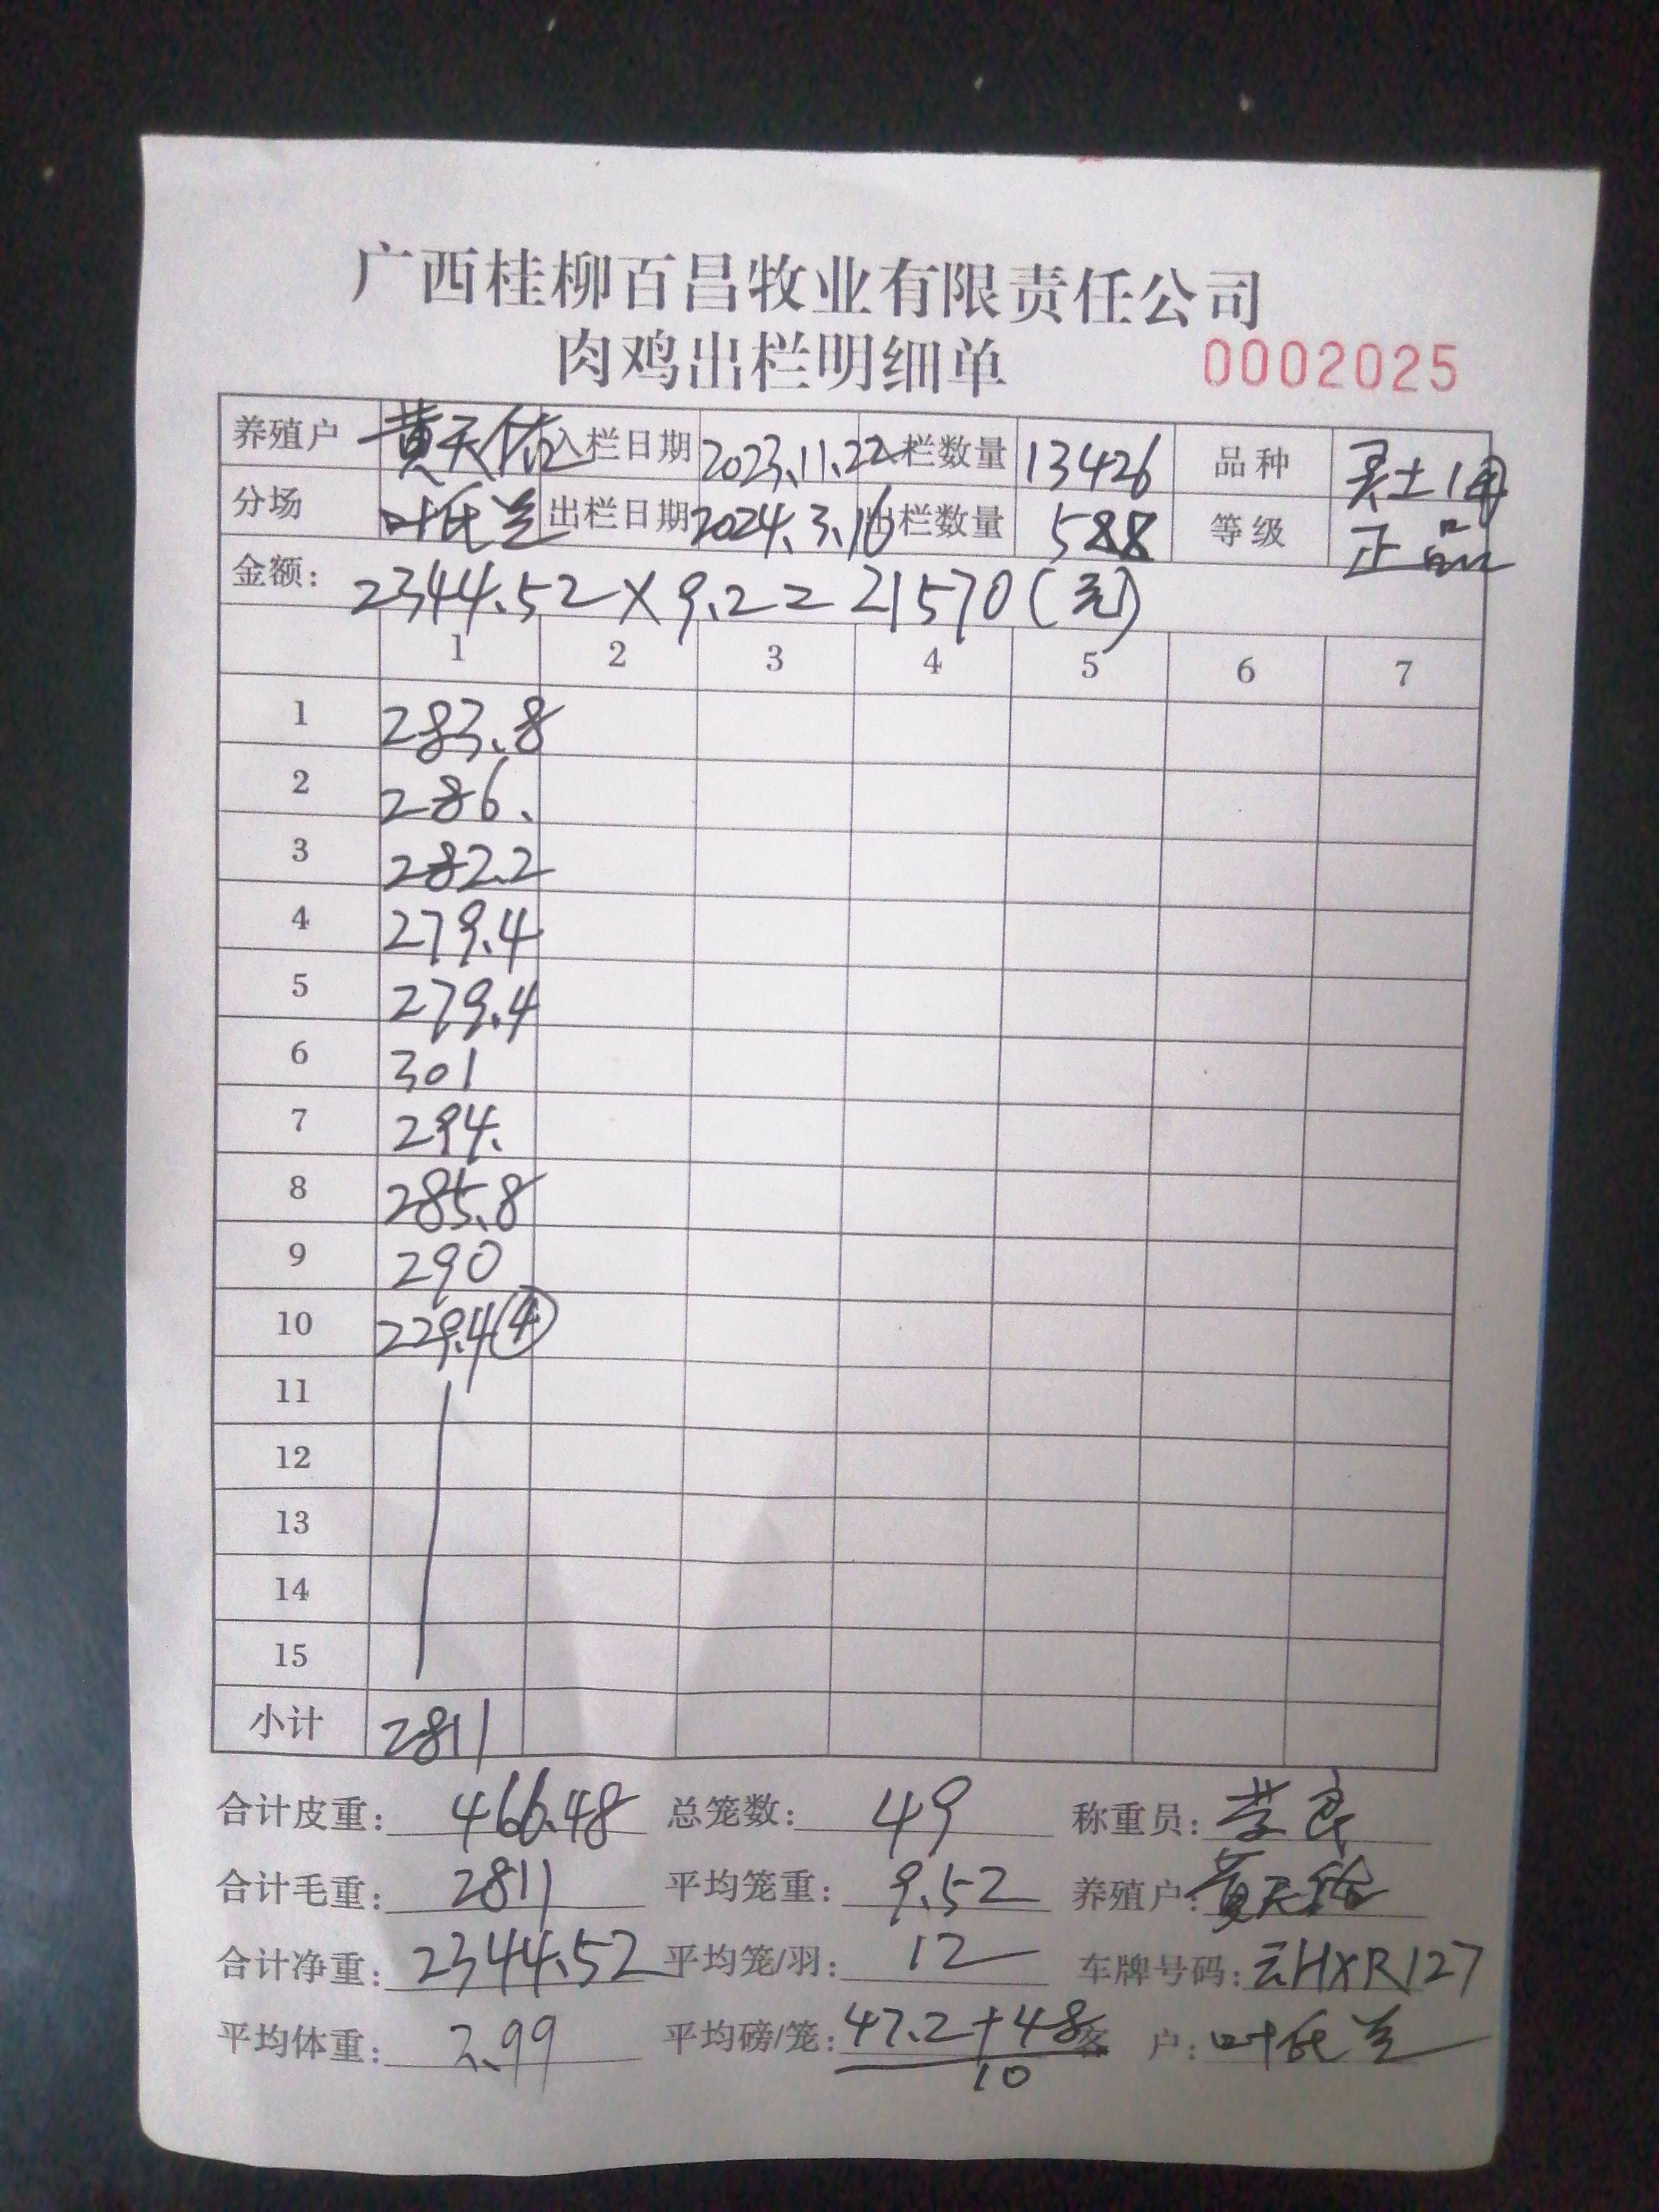 广西桂柳百昌牧业有限责任公司
肉鸡出栏明细单 0002025
养殖户 黄天佑 入栏日期 2023.11.22 栏数量 13426 品种 灵土1
分场 叶氏兰 出栏日期 2024.3.16 出栏数量 588 等级 正品
金额: 2344.52×9.2=21570(元)
1 2 3 4 5 6 7
1 283.8
2 286.
3 282.2
4 279.4
5 279.4
6 301
7 294.
8 285.8
9 290
10 229.4④
11
12
13
14
15
小计 2811
合计皮重: 466.48 总笼数: 49 称重员:
合计毛重: 2811 平均笼重: 9.52 养殖户: 黄天佑
合计净重: 2344.52 平均笼/羽: 12 车牌号码: 云HXR127
平均体重: 3.99 平均磅/笼: 47.2+48 客 户: 叶氏兰
10